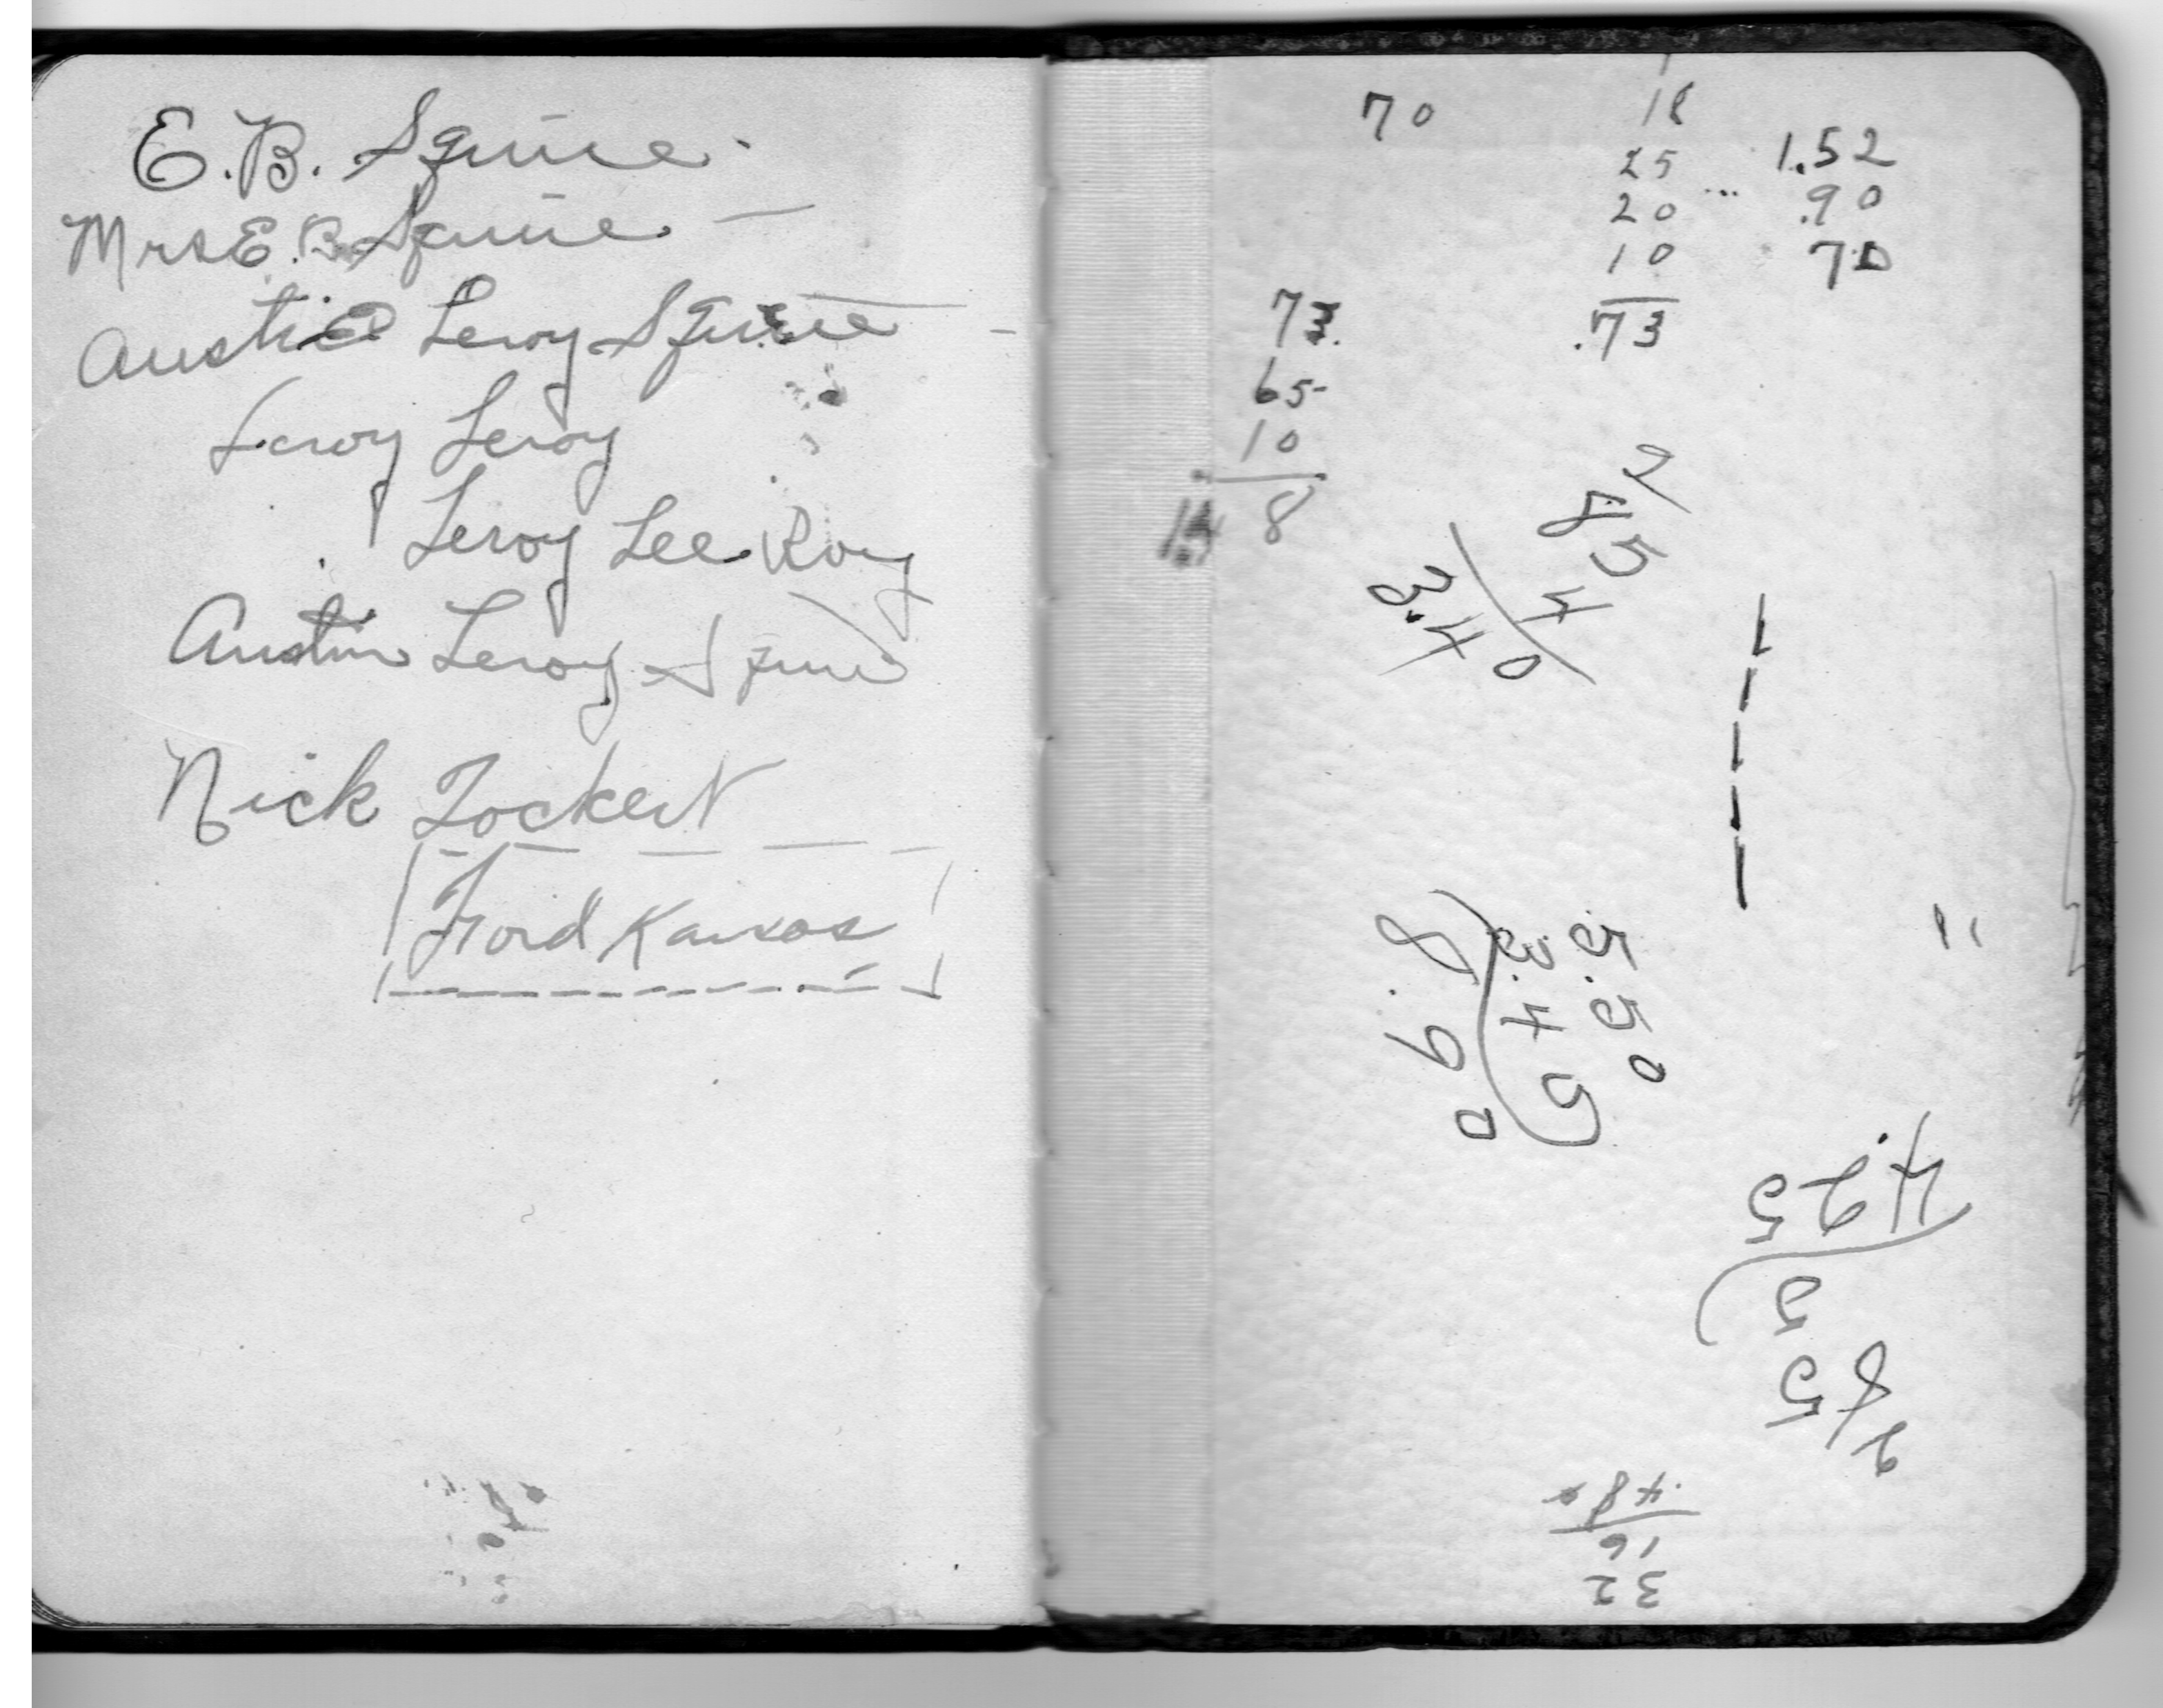 E.B. Squire
Mrs E.B. Squire
Austin Leroy Squire
Leroy Leroy
Leroy Lee Roy
Austin Leroy Squire
Nick Tockert
Ford Kansas
70
18
25
20
10
.73
1.52
.90
70
73
65
10
8
5.50
8.90
4.25
.48
16
32